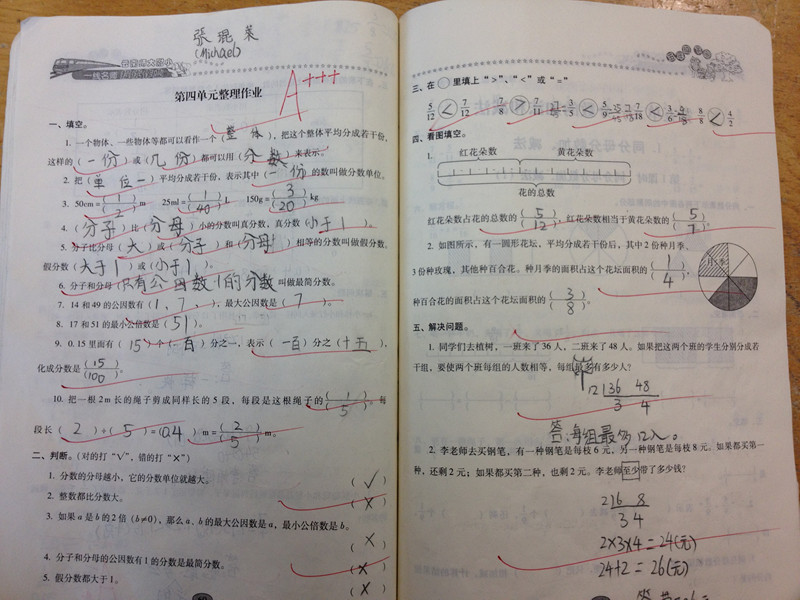 张琨莱
(Michael)
A+++
一线名师
第四单元整理作业
一、填空。
1. 一个物体、一些物体等都可以看作一个(整体),把这个整体平均分成若干份,
这样的(一份)或(几份)都可以用(分数)来表示。
2. 把(单位一)平均分成若干份,表示其中(一份)的数叫做分数单位。
3. 50cm=(1/2)m 25ml=(1/40)L 150g=(3/20)kg
4. (分子)比(分母)小的分数叫真分数,真分数(小于1)。
5. 分子比分母(大)或(分子)和(分母)相等的分数叫做假分数,
假分数(大于1)或(小于1)。
6. 分子和分母(只有公因数1的分数叫做最简分数。
7. 14和49的公因数有(1,7,),最大公因数是(7)。
8. 17和51的最小公倍数是(51)。
9. 0.15里面有(15)个(一百)分之一,表示(一百)分之(十五),
化成分数是(15)/(100)。
10. 把一根2m长的绳子剪成同样长的5段,每段是这根绳子的(1)/(5),每
段长(2)÷(5)=(0.4)m=(2)/(5)m。
二、判断。(对的打“√”,错的打“×”)
1. 分数的分母越小,它的分数单位就越大。 (√)
2. 整数都比分数大。 (×)
3. 如果a是b的2倍(b≠0),那么a、b的最大公因数是a,最小公倍数是b。
(×)
4. 分子和分母的公因数有1的分数是最简分数。 (×)
5. 假分数都大于1。 (×)
三、在○里填上“>”、“<”或“=”
5/12 < 7/12 7/8 > 7/11 3/5 < 5/9 7/18 < 3/6 8/8 < 4/2
四、看图填空。
1.
红花朵数 黄花朵数
花的总数
红花朵数占花的总数的(5)/(12),红花朵数相当于黄花朵数的(5)/(7)。
2. 如图所示,有一圆形花坛,平均分成若干份后,其中2份种月季,
3份种玫瑰,其他种百合花。种月季的面积占这个花坛面积的(1)/(4),
月季
种百合花的面积占这个花坛面积的(3)/(8)。
五、解决问题。
1. 同学们去植树,一班来了36人,二班来了48人。如果把这两个班的学生分别分成若
干组,要使两个班每组的人数相等,每组最多有多少人?
12 36 48
3 4
答:每组最多12人。
2. 李老师去买钢笔,有一种钢笔是每枝6元,另一种钢笔是每枝8元。如果都买第一
种,还剩2元;如果都买第二种,也剩2元。李老师至少带了多少钱?
2 6 8
3 4
2×3×4=24(元)
24+2=26(元)